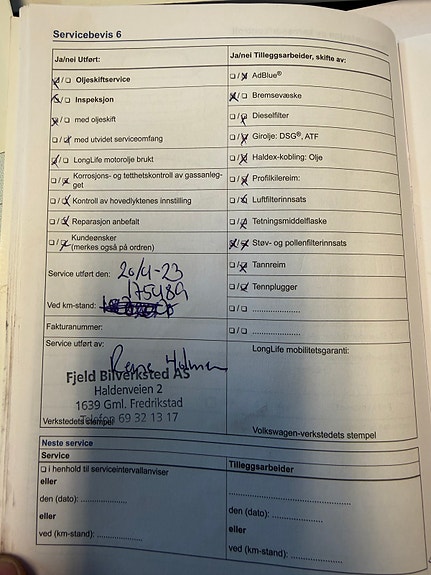 Servicebevis 6
Ja/nei Utført:
☒/☐ Oljeskiftservice
☒/☐ Inspeksjon
☒/☐ med oljeskift
☐/☒ med utvidet serviceomfang
☒/☐ LongLife motorolje brukt
☐/☒ Korrosjons- og tetthetskontroll av gassanleg-
get
☐/☒ Kontroll av hovedlyktenes innstilling
☐/☒ Reparasjon anbefalt
☐/☒ Kundeønsker
(merkes også på ordren)
Service utført den: 20/4-23
175489
Ved km-stand:
Fakturanummer:
Service utført av:
Fjeld Bilverksted AS
Haldenveien 2
1639 Gml. Fredrikstad
Telefon 69 32 13 17
Verkstedets stempel
Ja/nei Tilleggsarbeider, skifte av:
☐/☒ AdBlue®
☒/☐ Bremsevæske
☐/☒ Dieselfilter
☐/☒ Girolje: DSG®, ATF
☐/☒ Haldex-kobling: Olje
☐/☒ Profilkilereim:
☐/☒ Luftfilterinnsats
☐/☒ Tetningsmiddelflaske
☒/☒ Støv- og pollenfilterinnsats
☐/☒ Tannreim
☐/☒ Tennplugger
☐/☐ ....................
☐/☐ ....................
LongLife mobilitetsgaranti:
Volkswagen-verkstedets stempel
Neste service
Service
☐ i henhold til serviceintervallanviser
eller
den (dato): ...................
eller
ved (km-stand): ...............
Tilleggsarbeider
.....................................
den (dato): ...................
eller
ved (km-stand): ...............